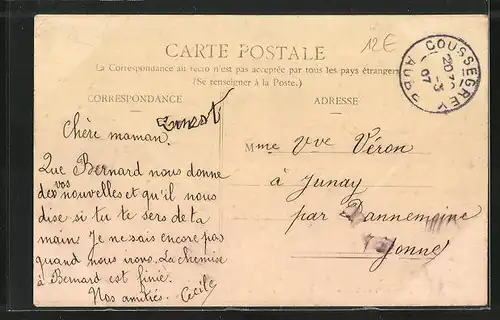 12E
CARTE POSTALE
La Correspondance au recto n'est pas acceptée par tous les pays étrangers
(Se renseigner à la Poste.)
CORRESPONDANCE
ADRESSE
COUSSEGREY
AUBE
07
Chère maman
Que Bernard nous donne
de vos nouvelles et qu'il nous
dise si tu te sers de ta
main. Je ne sais encore pas
quand nous irons. La chemise
à Bernard est finie.
Nos amitiés. Cecile
Mme Vve Véron
à Junay
par Dannemoine
Yonne